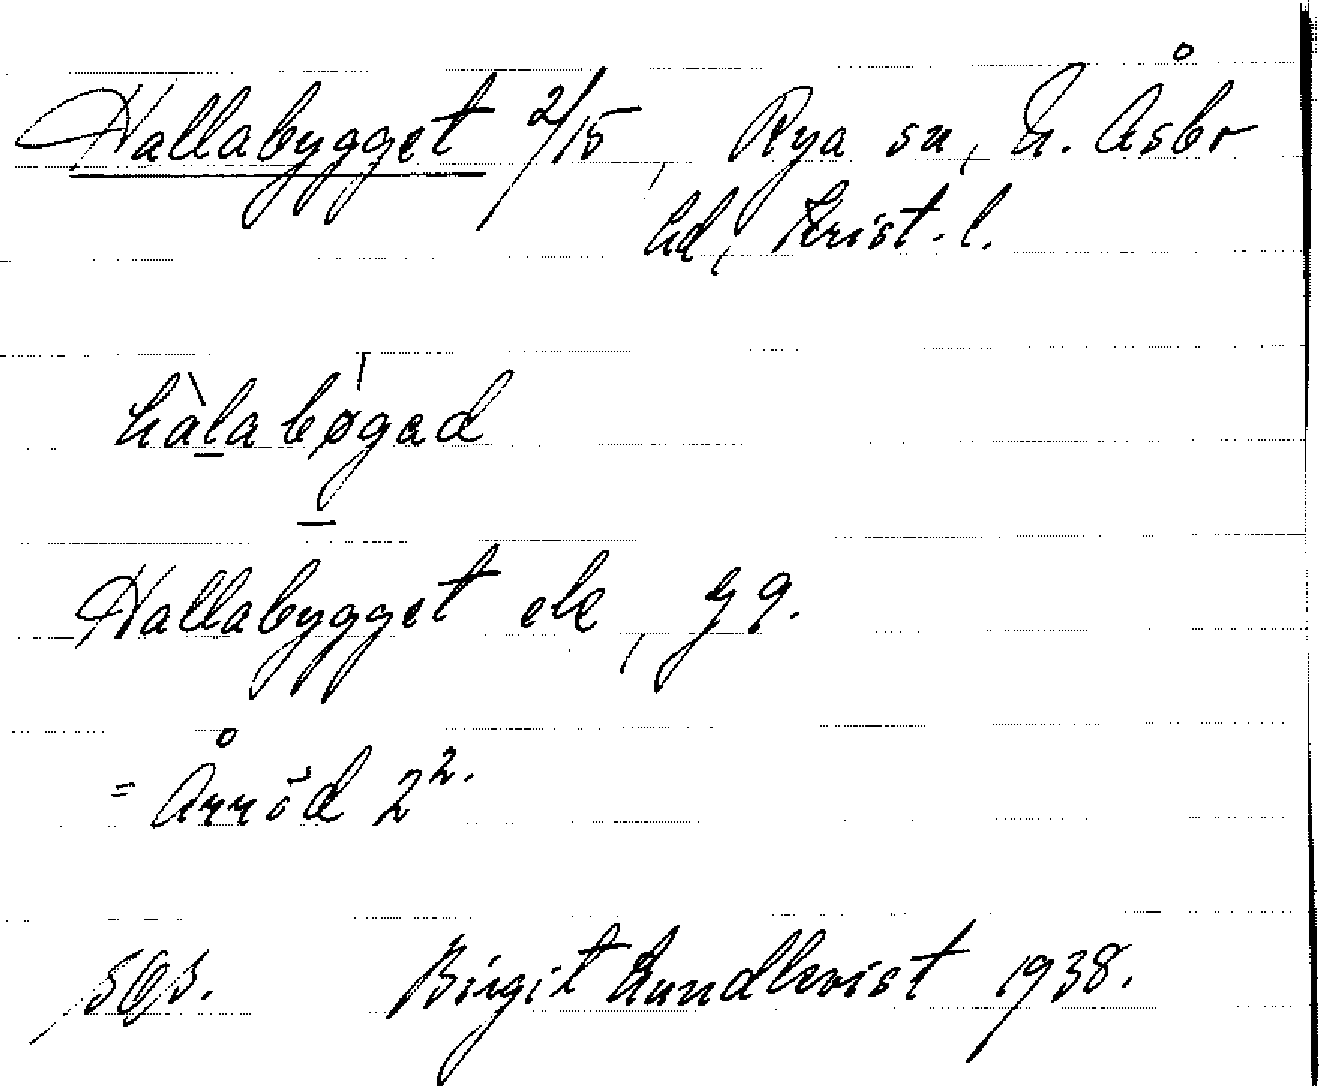 Hallabygget 2/15, Rya sn, N. Åsbo
hd, Krist. l.
hàlabøgad
Hallabygget ek, g 9.
= Årröd 2².
SOS. Birgit Lundkvist 1938.